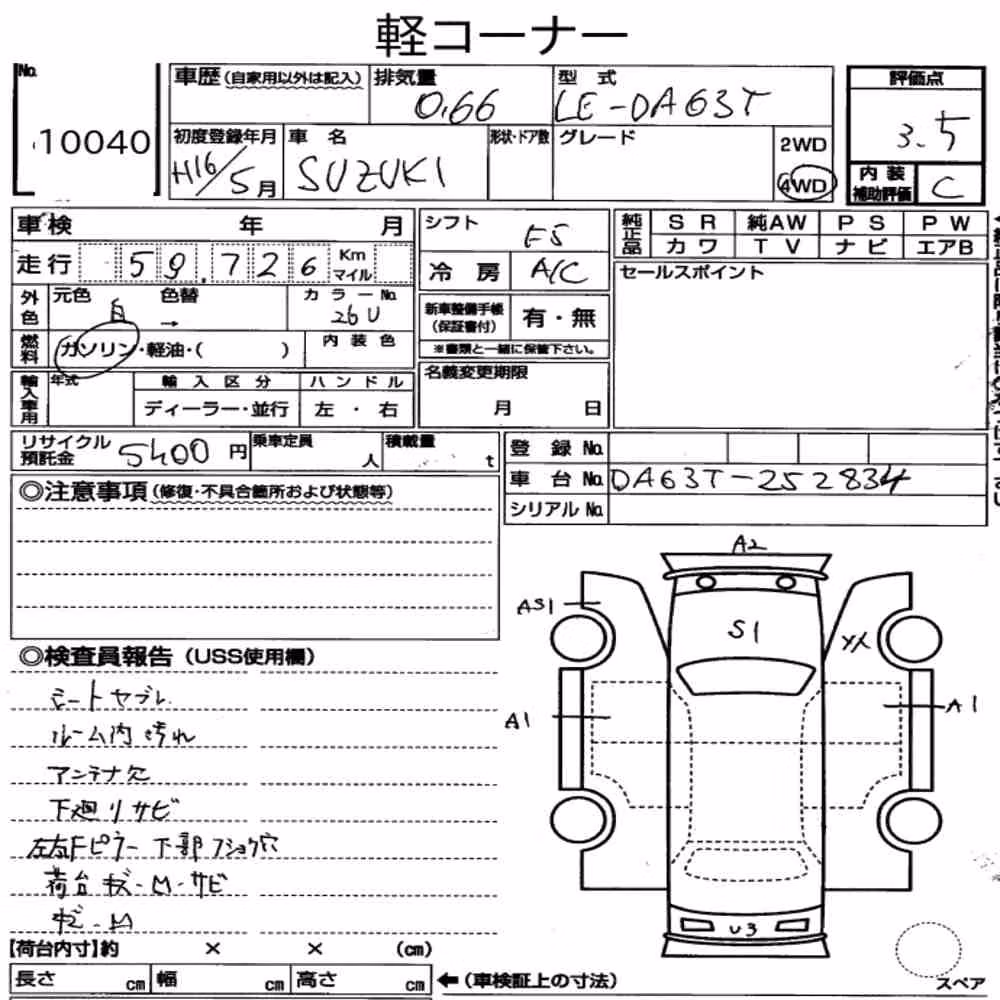 軽コーナー
No. 10040
車歴(自家用以外は記入)
排気量 0.66
型式 LE-DA63T
評価点 3.5
初度登録年月 H16/5月
車名 SUZUKI
形状・ドア数
グレード
2WD
4WD
内装補助評価 C
車検 年 月
シフト F5
純正品 SR 純AW PS PW
カワ TV ナビ エアB
走行 59,726 Km マイル
冷房 A/C
セールスポイント
外色 元色 白 色替 → カラーNo. 26U
新車整備手帳(保証書付) 有・無
※書類と一緒に保管下さい。
燃料 ガソリン・軽油・( ) 内装色
輸入車用 年式 輸入区分 ハンドル
ディーラー・並行 左・右
名義変更期限
月 日
リサイクル預託金 5400円
乗車定員 人
積載量 t
登録No.
車台No. DA63T-252834
シリアルNo.
◎注意事項(修復・不具合箇所および状態等)
◎検査員報告(USS使用欄)
シートヤブレ
ルーム内汚れ
アンテナ欠
下廻リサビ
左右Fピラー下部フショク穴
荷台キズ-M-サビ
キズ-M
A2
AS1
S1
XX
A1
A1
U3
スペア
【荷台内寸】約 × × (cm)
長さ cm 幅 cm 高さ cm ←(車検証上の寸法)